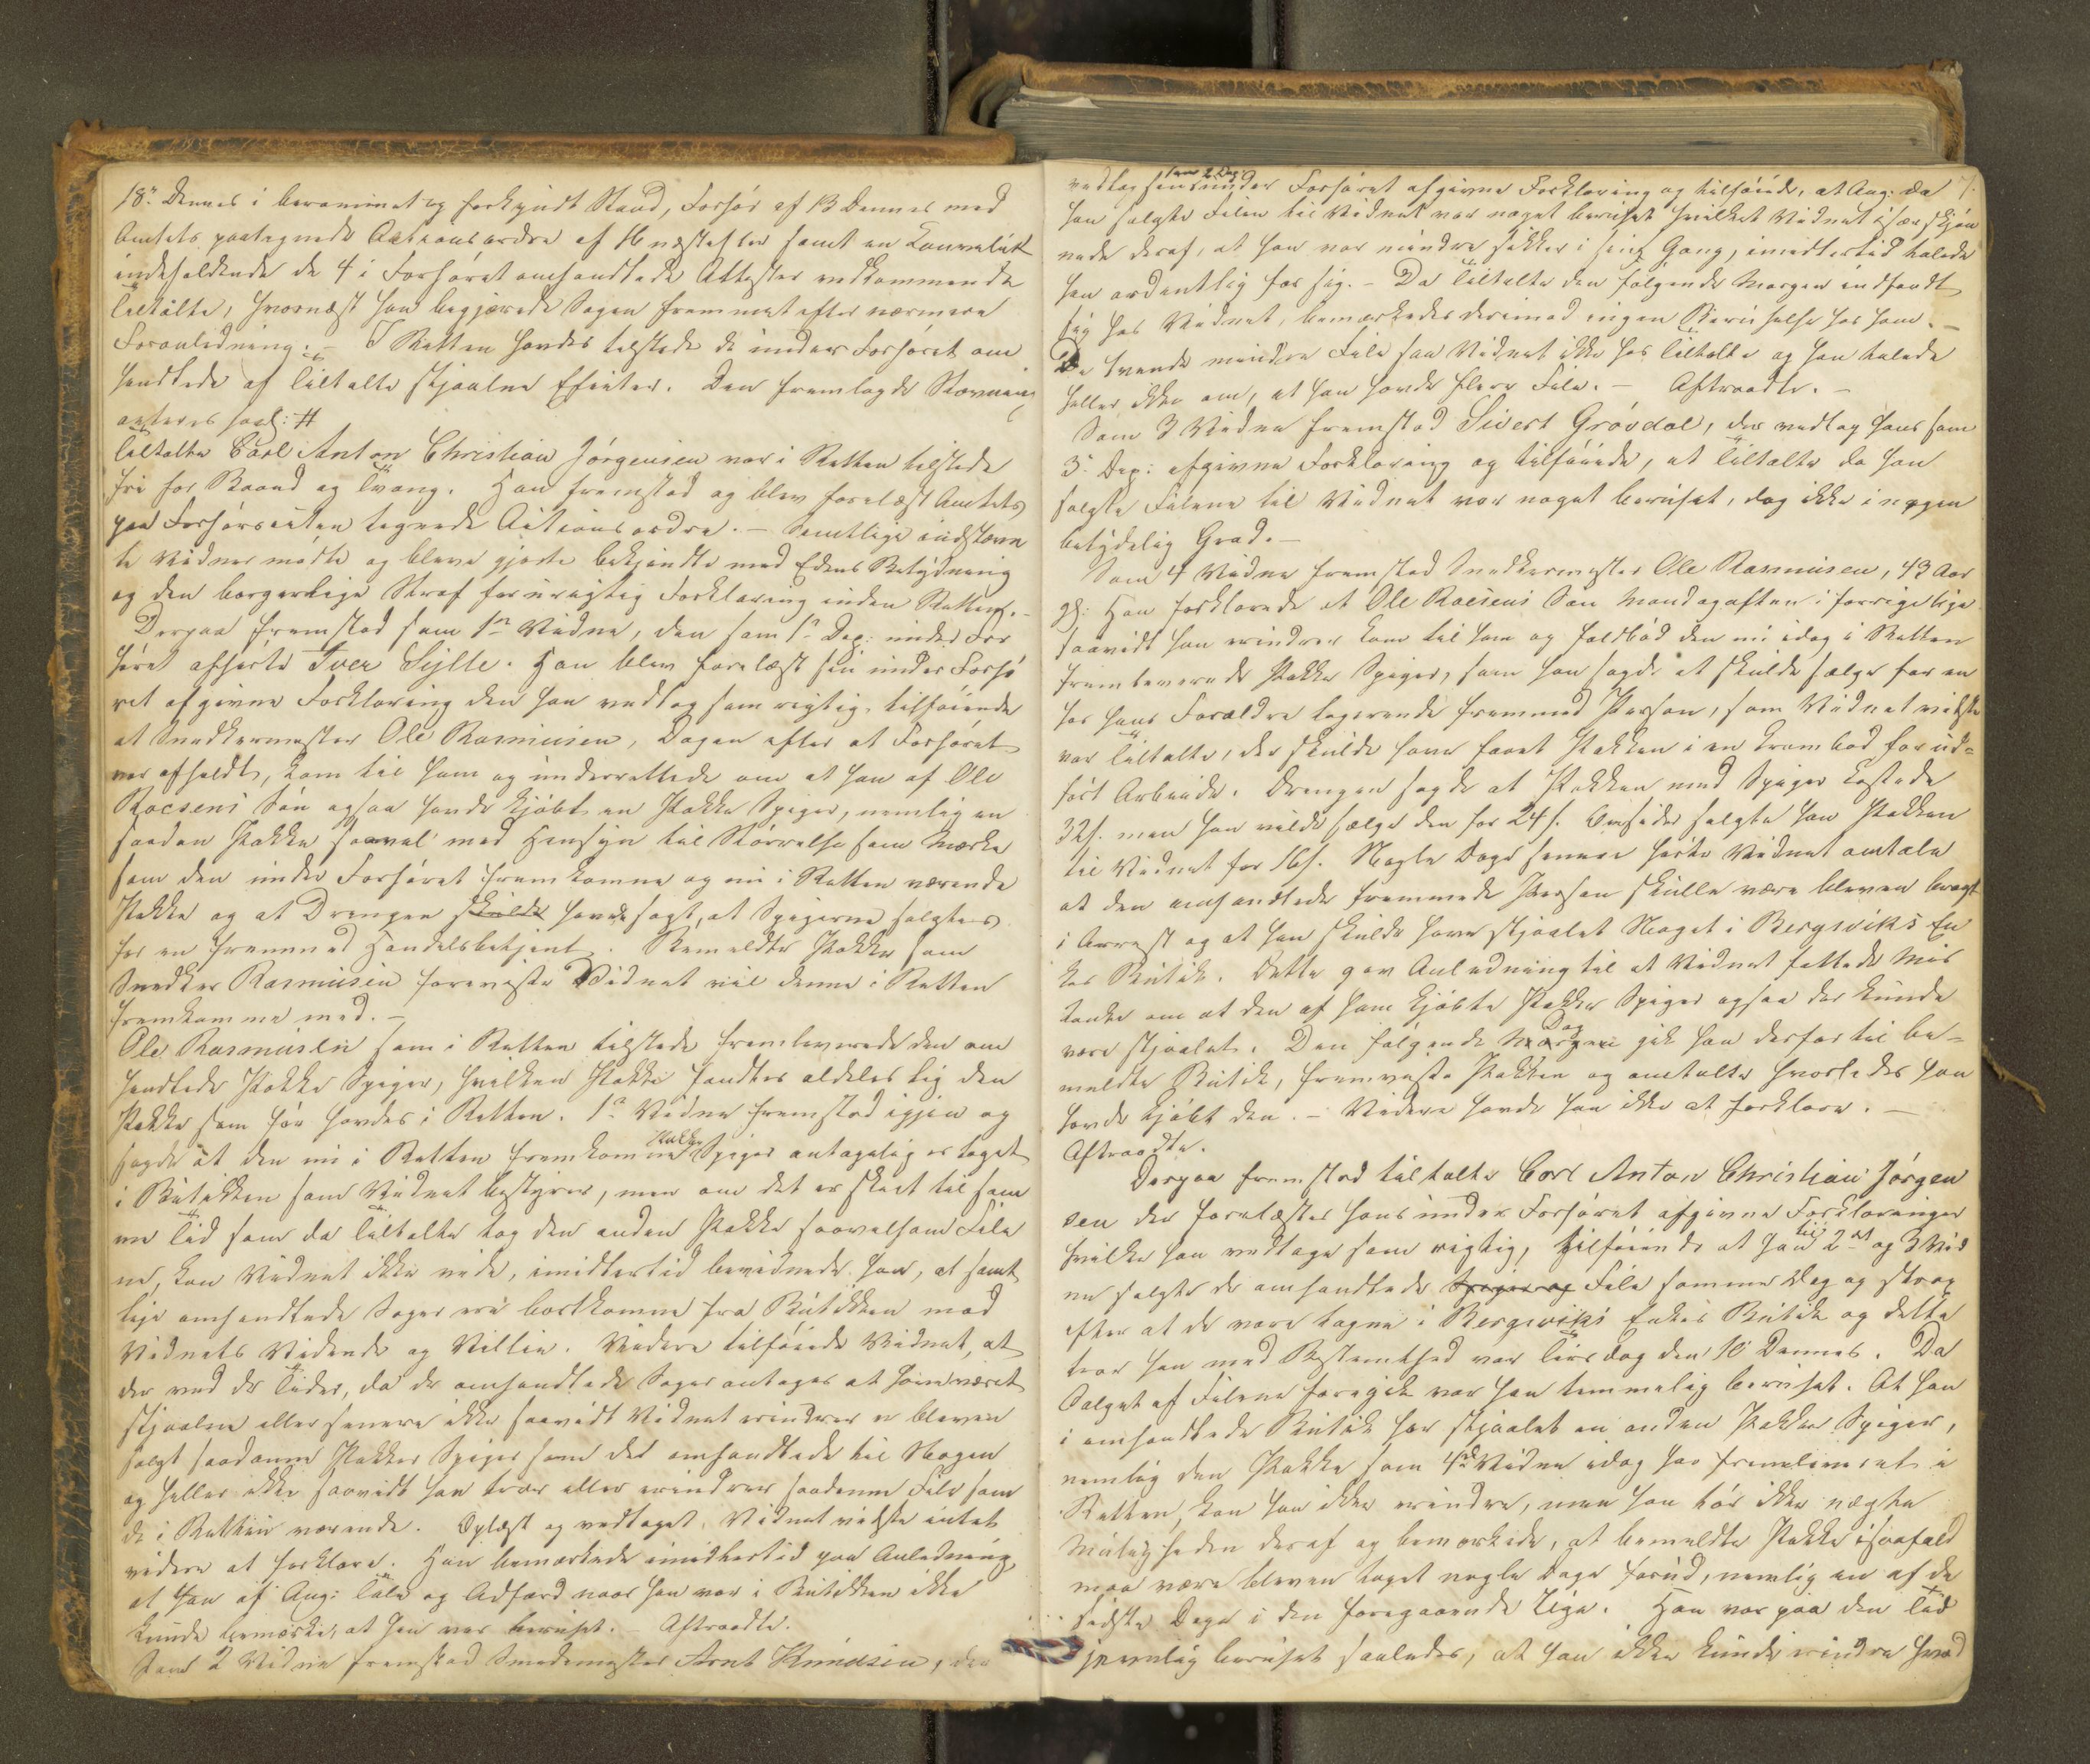 18de Dennes i berammet og forkyndt Stand, Forhør af 13 Dennes med
Amtets paategnede Actionsordre af 16 næstefter samt en Convolut
indeholdende de 4 i Forhøret omhandlede Attester vedkommende
Tiltalte, hvornæst han begjærede Sagen fremmet efter nærmere
Foranledning. – I Retten havdes tilstede de under Forhøret om
handlede af Tiltalte stjaalne Effecter. Den fremlagde Stævning
acteres saal: #
Tiltalte Carl Anton Christian Jörgensen var i Retten tilstede
fri for Baand og Tvang. Han fremstod og blev forelæst Amtets
paa Forhørsacten tegnede Actionsordre. – Samtlige indstævn
te Vidner mødte og bleve gjorte bekjendte med Edens Betydning
og den borgerlige Straf for urigtig Forklaring inden Retten. –
Derpaa fremstod som 1ste Vidne, den som 1ste Dep: under For
høret afhørte Iver Sylte. Han blev forelæst sin under Forhø
ret afgivne Forklaring den han vedtog som rigtig, tilføiende
at Snedkermester Ole Rasmusen, Dagen efter at Forhøret
var afholdt, kom til ham og underrettede om at han af Ole
Roesens Søn ogsaa havde kjøbt en Pakke Spiger, nemlig en
saadan Pakke saavel med Hensyn til Størrelse som Mærke
som den under Forhøret fremkomne og nu i Retten værende
Pakke og at Drengen skulde havde sagt, at Spigerne solgtes
for en fremmed Handelsbetjent. Bemeldte Pakke som
Snedker Rasmusen foreviste Vidnet vil denne i Retten
fremkomme med. –
Ole Rasmusen som i Retten tilstede fremleverede den om
handlede Pakke Spiger, hvilken Pakke fandtes aldeles lig den
Pakke som før havdes i Retten. 1ste Vidne fremstod igjen og
sagde at den nu i Retten fremkomne Pakke Spiger antagelig er taget
i Butikken som Vidnet bestyrer, men om det er skeet til sam
me Tid som da Tiltalte tog den anden Pakke saavelsom File
ne, kan Vidnet ikke vide, imidlertid bevidnede han, at samt
lige omhandlede Sager ere bortkomne fra Butikken mod
Vidnets Vidende og Villie. Videre tilføiede Vidnet, at
der ved de Tider, da de omhandlede Sager antages at have været
stjaalne eller senere ikke saavidt Vidnet erindrer er bleven
solgt saadanne Pakker Spiger som det omhandlede til Nogen
og heller ikke saavidt han troer eller erindrer saadanne File som
de i Retten værende. Oplæst og vedtaget. Vidnet vidste intet
videre at forklare. Han bemærkede imidlertid paa Anledning
at han af Ang: Tale og Adfærd naar han var i Butikken ikke
kunde bemærke, at han var beruset. – Aftraadte.
Som 2 Vidne fremstod Smedemester Arnt Knudsen, der
7.
vedtog sin som 2 Dep: under Forhøret afgivne Forklaring og tilføiede, at Ang. da
han solgte Filen til Vidnet var noget beruset hvilket Vidnet især skjøn
nede deraf, at han var mindre sikker i sin Gang, imidlertid talede
han ordentlig for sig. – Da Tiltalte den følgende Morgen indfandt
sig hos Vidnet, bemærkedes derimod ingen Beruselse hos ham. –
De tvende mindre File saa Vidnet ikke hos Tiltalte og han talede
heller ikke om, at han havde flere File. – Aftraadte. –
Som 3 Vidne fremstod Sivert Grövdal, der vedtog hans som
3. Dep: afgivne Forklaring og tilføiede, at Tiltalte da han
solgte Filene til Vidnet var noget beruset, dog ikke i nogen
betydelig Grad. –
Som 4 Vidne fremstod Snedkermester Ole Rasmusen, 43 Aar
gl: Han forklarede at Ole Roesens Søn Mandagaften i forrige Uge
saavidt han erindrer kom til ham og falbød den nu idag i Retten
fremleverede Pakke Spiger, som han sagde at skulde sælge for en
hos hans Forældre logerende fremmed Person, som Vidnet vidste
var Tiltalte, der skulde have faaet Pakken i en Krambod for ud-
ført Arbeide. Drengen sagde at Pakken med Spiger kostede
32 s. men han vilde sælge den for 24 s. Omsider solgte han Pakken
til Vidnet for 16 s. Nogle Dage senere hørte Vidnet omtale
at den omhandlede fremmede Person skulle være bleven bragt
i Arrest og at han skulde have stjaalet Noget i Bergsviks En
kes Butik. Dette gav Anledning til at Vidnet fattede Mis
tanke om at den af ham kjøbte Pakke Spiger ogsaa der kunde
være stjaalet. Den følgende Morgen Dag gik han derfor til be-
meldte Butik, fremviste Pakken og omtalte hvorledes han
havde kjøbt den. – Videre havde han ikke at forklare. –
Aftraadte.
Derpaa fremstod Tiltalte Carl Anton Christian Jörgen
sen der forelæstes hans under Forhøret afgivne Forklaringer
hvilke han vedtoge som rigtig, tilføiende at han til 2det og 3 Vid
ne solgte de omhandlede Spiger og File samme Dag og strax
efter at de vare tagne i Bergsviks Enkes Butik og dette
troer han med Bestemthed var Tirsdag den 10 Dennes. Da
Salget af Filene foregik var han temmelig beruset. At han
i omhandlede Butik har stjaalet en anden Pakke Spiger,
nemlig den Pakke som 4de Vidne idag har fremleveret i
Retten, kan han ikke erindre, men han tør ikke nægte
Muligheden deraf og bemærkede, at bemeldte Pakke isaafald
maa være bleven taget nogle Dage forud, nemlig en af de
sidste Dage i den foregaaende Uge. Han var paa den Tid
jevnlig beruset saaledes, at han ikke kunde erindre hvad